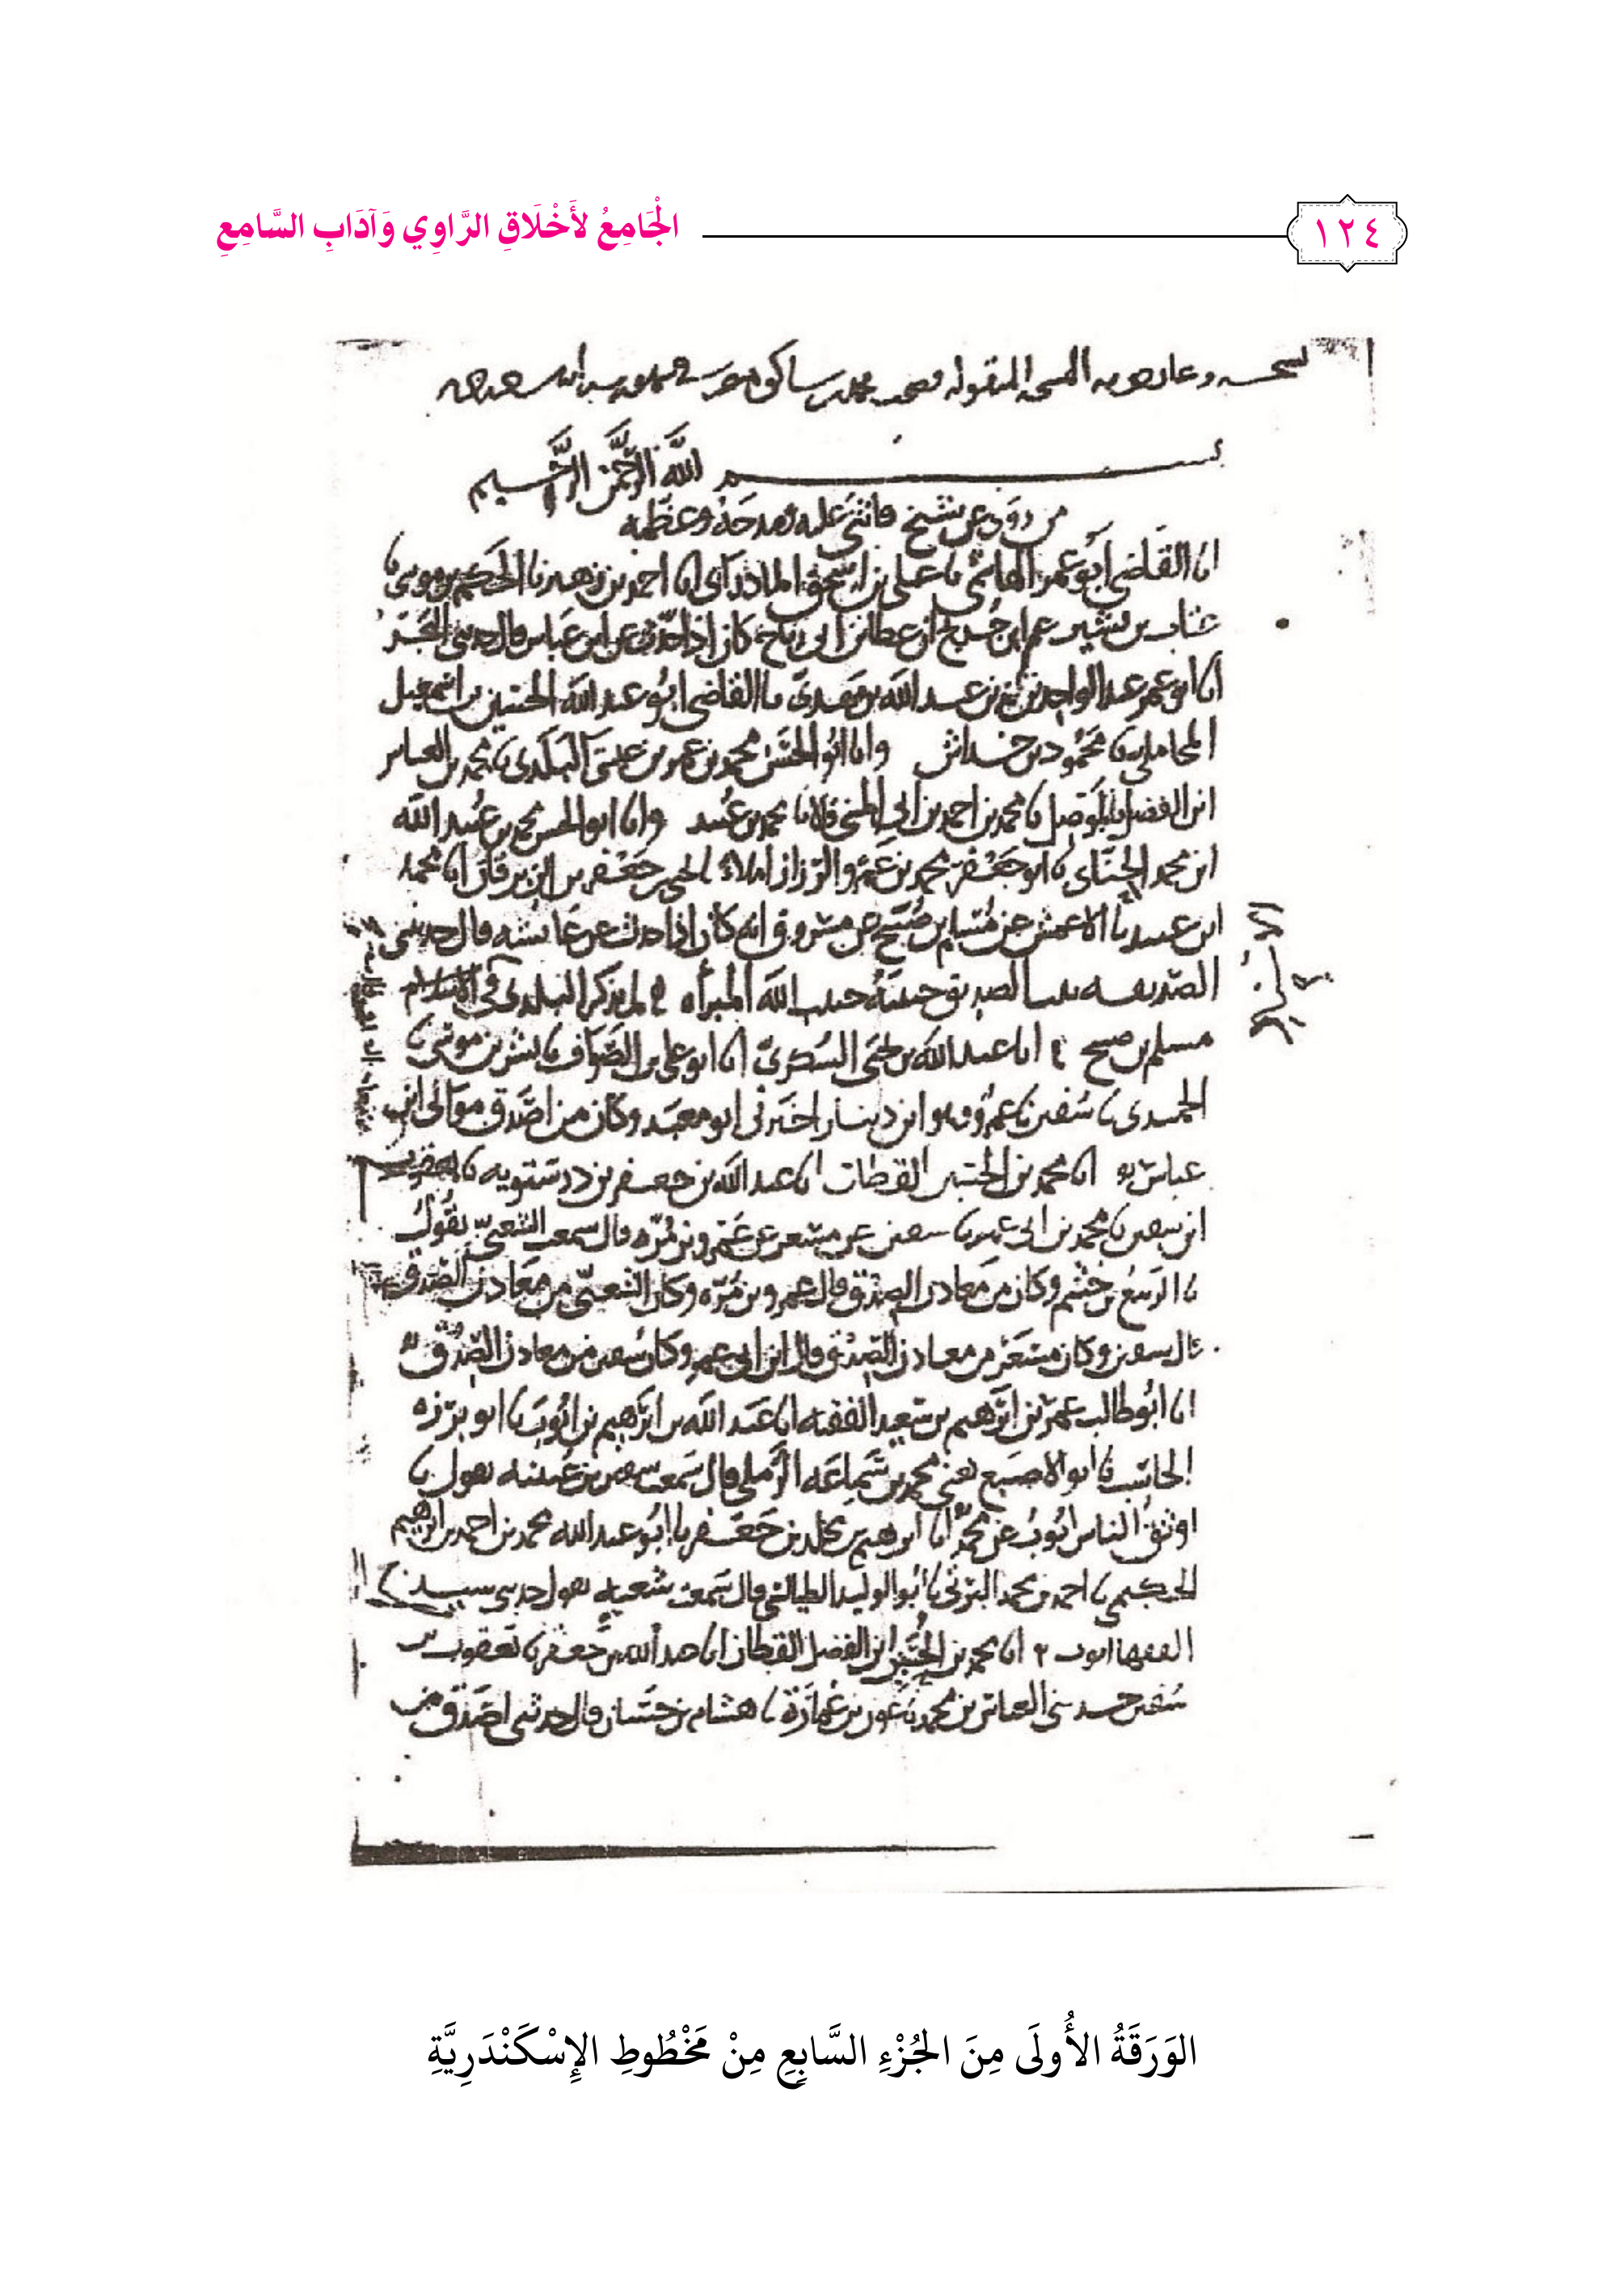 ١٢٤
الْجَامِعُ لأَخْلَاقِ الرَّاوِي وَآدَابِ السَّامِعِ
بسم الله الرحمن الرحيم
من روى عن شيخ فاثنى عليه ومدحه وعظمه
انا القاضي ابو عمر الهاشمي نا علي بن اسحق الماذرائي انا احمد بن زهير نا الحكم بن موسى نا
عتاب بن بشير عن ابن جريج ان عطا بن ابي رباح كان اذا حدث عن ابن عباس قال حدثني البحر
انا ابو عمر عبد الواحد بن محمد بن عبد الله بن مهدي نا القاضي ابو عبد الله الحسين بن اسمعيل
المحاملي نا محمود بن خداش وانا ابو الحسن محمد بن عمر بن عيسى البلدي نا محمد بن العباس
ابن الفضل بالموصل نا محمد بن احمد بن ابي المثنى قالا نا محمد بن عبيد وانا ابو الحسن محمد بن عبيد الله
ابن محمد الحنائي نا ابو جعفر محمد بن عمرو الرزاز املاء نا جعفر بن انا محمد
ابن عبيد نا الاعمش عن مسلم بن صبيح عن مسروق انه كان اذا حدث عن عائشه قال حدثتني
الصديقه بنت الصديق حبيبة حبيب الله المبرأه لم يذكر البلدي في الاسناد
مسلم بن صبيح انا عبد الله بن يحيى السكري انا ابو علي بن الصواف نا بشر بن موسى نا
الحميدي نا سفين نا عمرو وهو ابن دينار اخبرني ابو معبد وكان من اصدق موالي ابن
عباس انا محمد بن الحسين القطان انا عبد الله بن جعفر بن درستويه نا يعقوب
ابن سفين نا محمد بن ابي عمر نا سفين عن مسعر عن عمرو بن مره قال سمعت الشعبي يقول
نا الربيع بن خثيم وكان من معادن الصدق قال عمرو بن مره وكان الشعبي من معادن الصدق
قال سفين وكان مسعر من معادن الصدق قال ابن ابي عمر وكان سفين من معادن الصدق
انا ابو طالب عمر بن ابرهيم بن سعيد الفقيه انا عبد الله بن ابرهيم بن ايوب نا ابو برزه
الحاسب نا ابو الاصبع يعني محمد بن سماعه الرملي قال سمعت سفين بن عيينه يقول نا
اوثق الناس ايوب عن محمد انا ابرهيم بن مخلد بن جعفر نا ابو عبد الله محمد بن احمد بن ابرهيم
الحكيمي نا احمد بن محمد البرتي نا ابو الوليد الطيالسي قال سمعت شعبه يقول حدثني سيد
الفقها ايوب انا محمد بن الحسين ابن الفضل القطان انا عبد الله بن جعفر نا يعقوب بن
سفين حدثني العباس بن محمد نا عون بن عمارة نا هشام بن حسان قال حدثني اصدق من
الوَرَقَةُ الأُولَى مِنَ الجُزْءِ السَّابِعِ مِنْ مَخْطُوطِ الإِسْكَنْدَرِيَّةِ